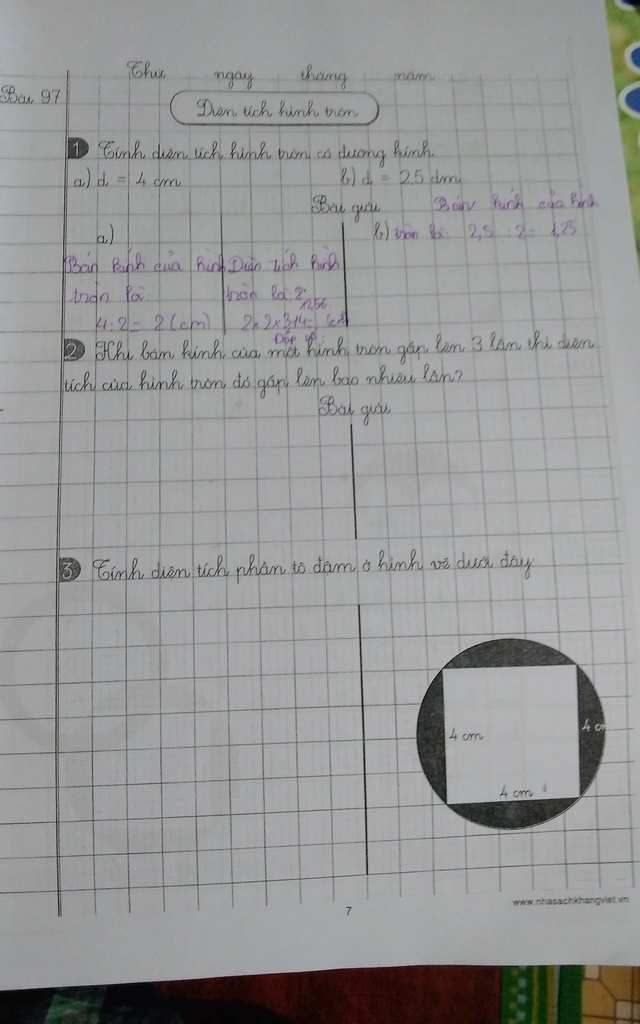 Thứ ngày tháng năm
Bài 97
Diện tích hình tròn
1 Tính diện tích hình tròn có đường kính
a) d = 4 cm b) d = 2,5 dm
Bài giải
a)
Bán kính của hình
tròn là
4 : 2 = 2 (cm)
Diện tích hình
tròn là
2 x 2 x 3,14 =
12,56
Đáp
Bán kính của hình
b) tròn là: 2,5 : 2 = 1,25
2 Khi bán kính của một hình tròn gấp lên 3 lần thì diện
tích của hình tròn đó gấp lên bao nhiêu lần?
Bài giải
3 Tính diện tích phần tô đậm ở hình vẽ dưới đây
4 cm
4 cm
4 cm
7
www.nhasachkhangviet.vn